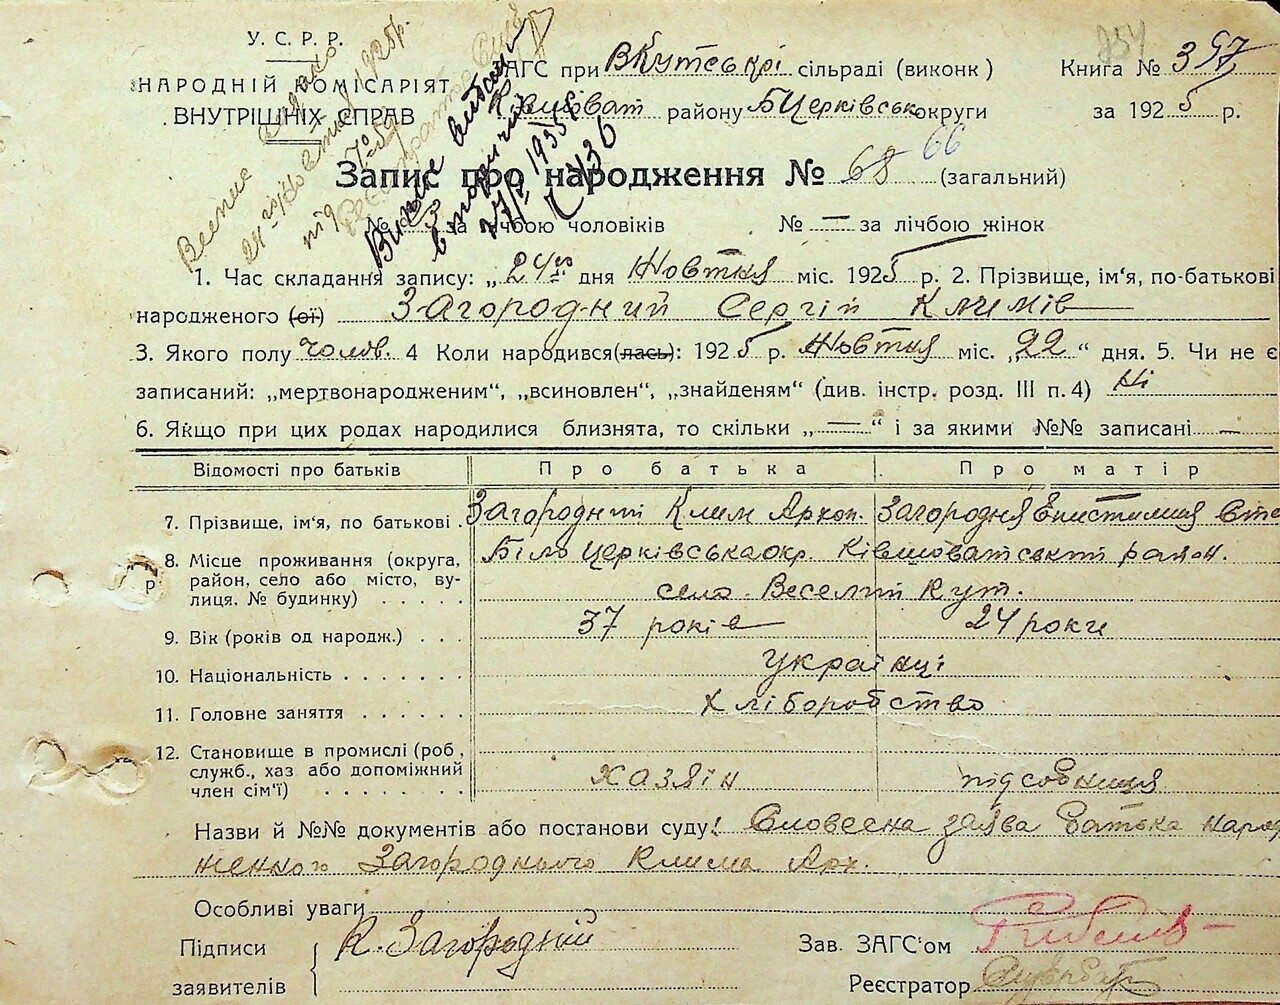 У. С. Р. Р.
НАРОДНІЙ КОМІСАРІЯТ
ВНУТРІШНІХ СПРАВ
ЗАГС при ВКутській сільраді (виконк) Книга № 3
району БЦерківськ округи за 1925 р.
Запис про народження № 68 66 (загальний)
№ за лічбою чоловіків № — за лічбою жінок
1. Час складання запису: „24го" дня Жовтня міс. 1925 р. 2. Прізвище, ім'я, по-батькові
народженого (ої) Загородний Сергій Климів
3. Якого полу чолов. 4 Коли народився(лась): 1925 р. Жовтня міс. „22" дня. 5. Чи не є
записаний: „мертвонародженим", „всиновлен", „знайденям" (див. інстр. розд. III п. 4) Ні
6. Якщо при цих родах народилися близнята, то скільки „—" і за якими №№ записані —
Відомості про батьків Про батька Про матір
7. Прізвище, ім'я, по батькові. Загородний Клим Архип. Загородня Епистимия
8. Місце проживання (округа, район, село або місто, вулиця, № будинку) Біло Церківська окр. Ківшоватський район.
село Веселий Кут.
9. Вік (років од народж.) 37 років 24 роки
10. Національність українці
11. Головне заняття хліборобство
12. Становище в промислі (роб., служб., хаз або допоміжний член сім'ї) хазяін підсобниця
Назви й №№ документів або постанови суду: Словесна заява батька народ
женного Загороднього Клима Арх.
Особливі уваги
Підписи заявителів К. Загородній
Зав. ЗАГС'ом
Реєстратор